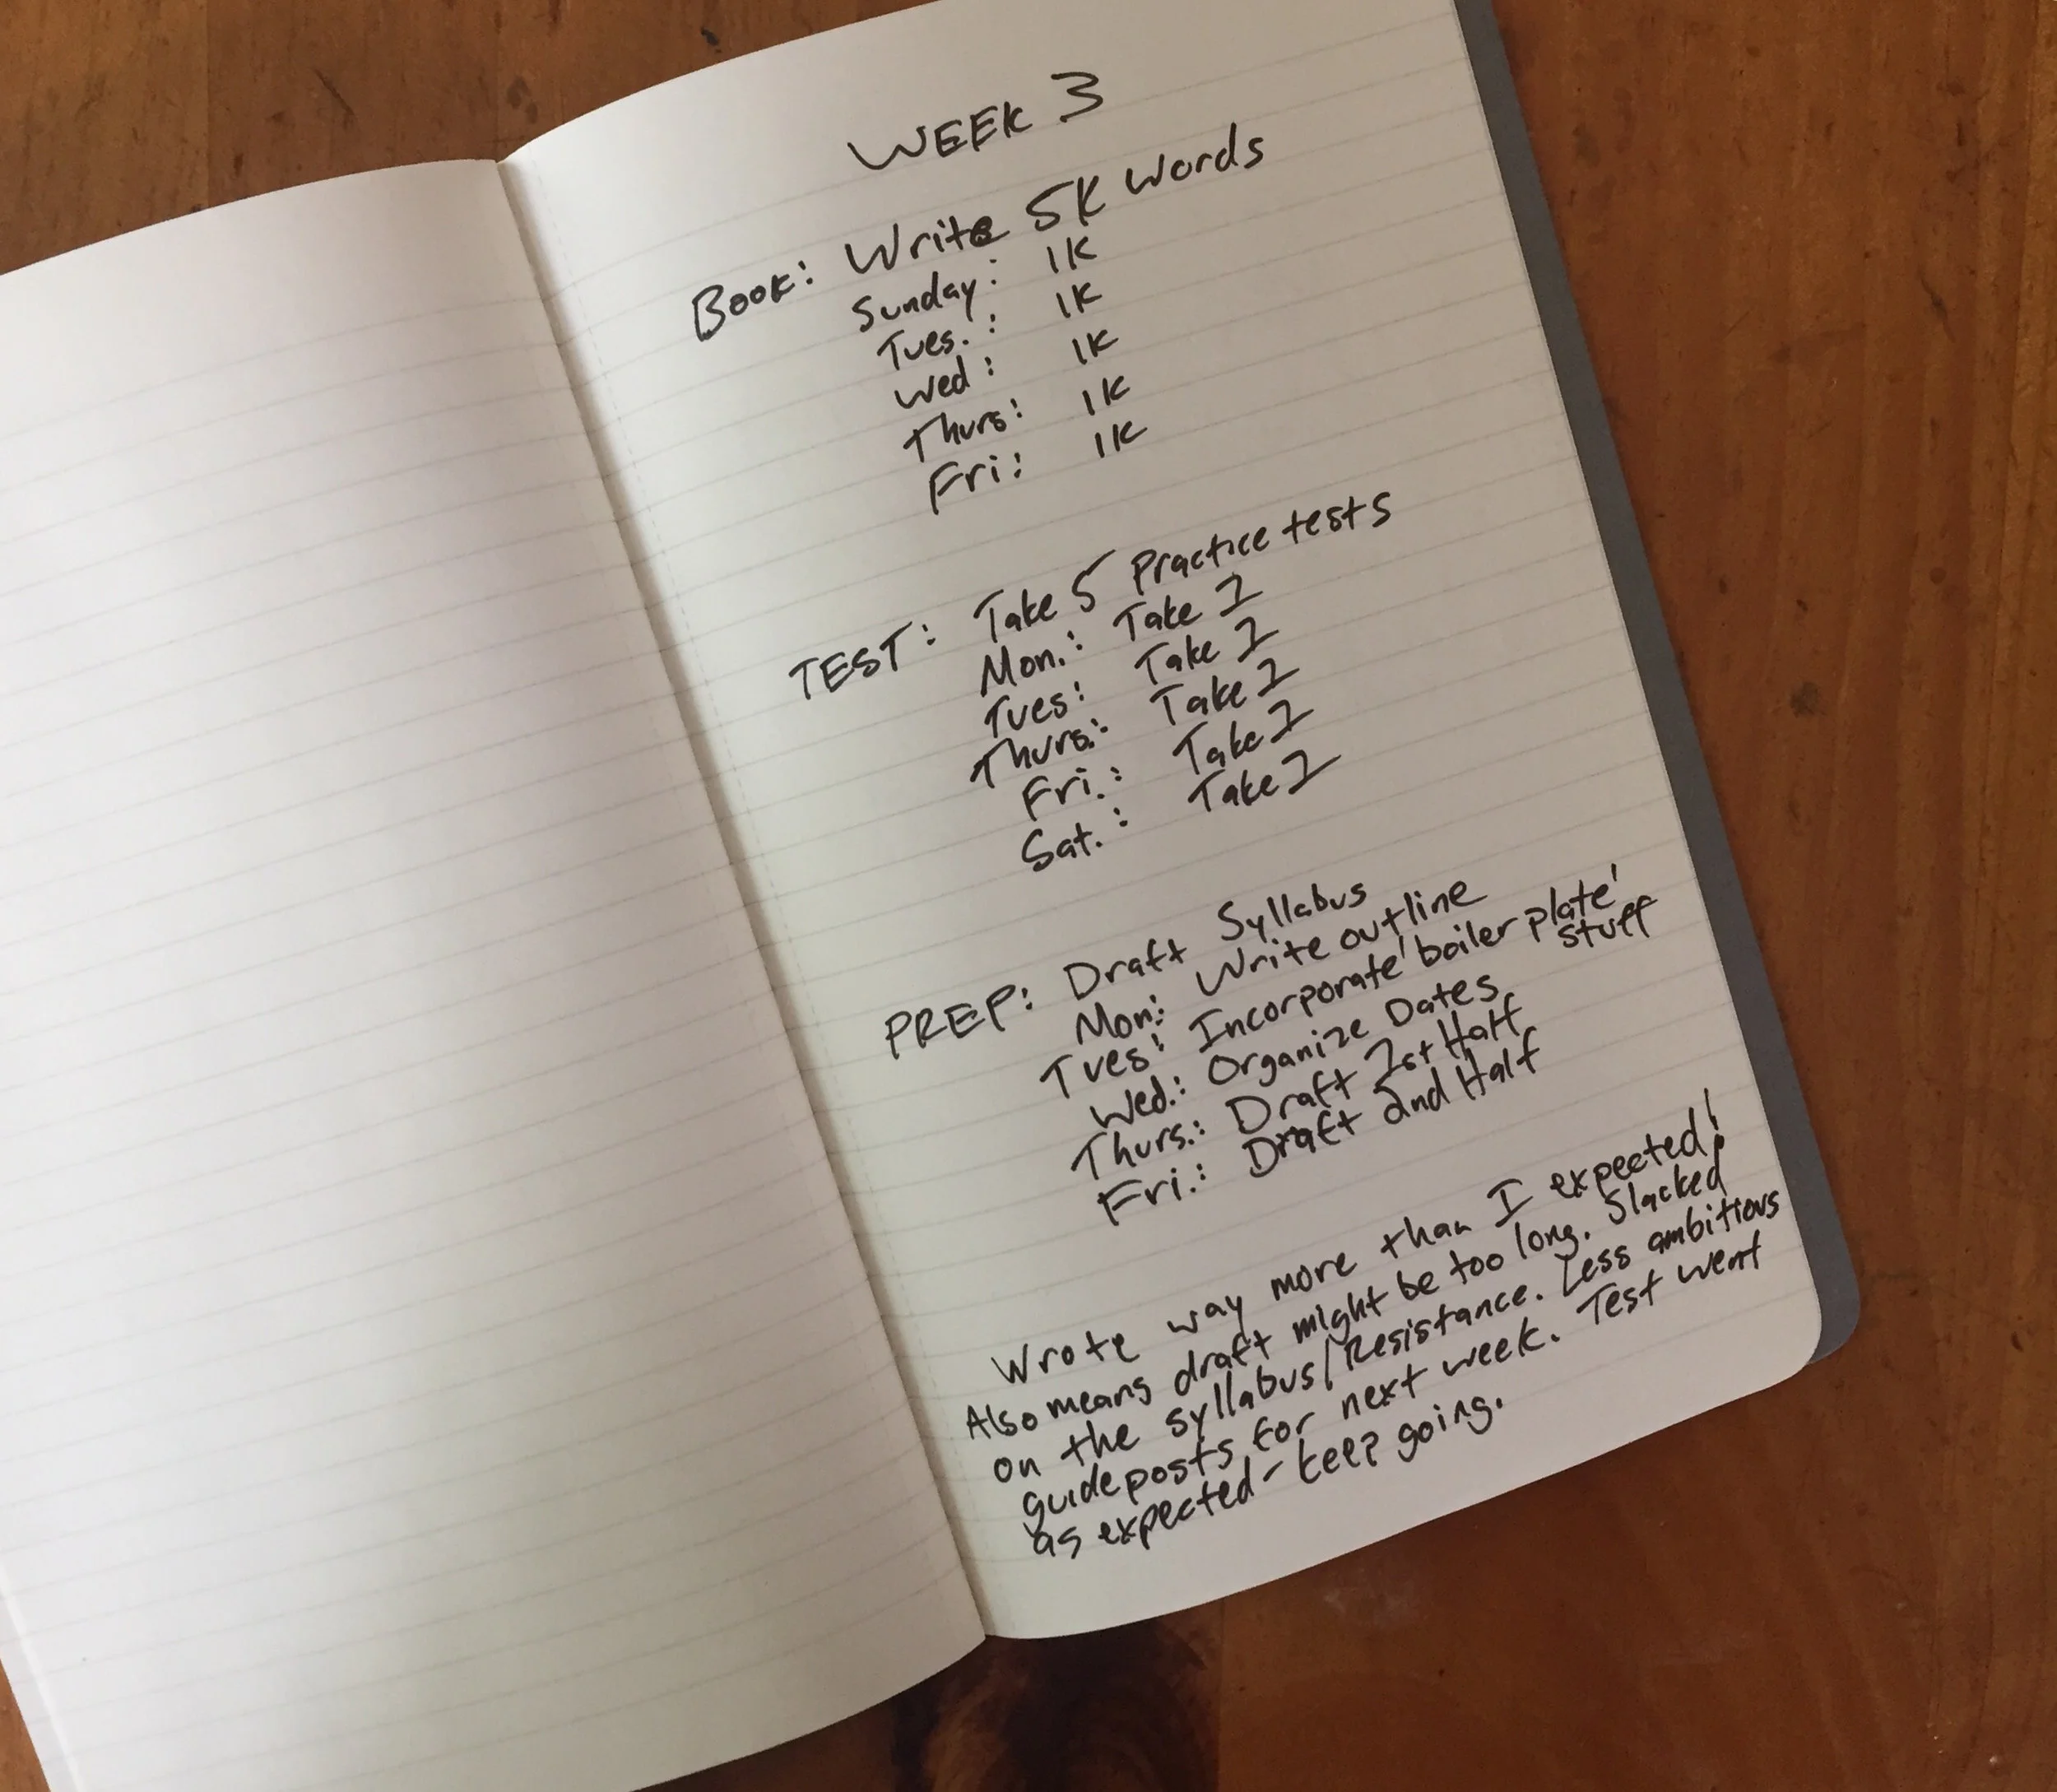 WEEK 3
Book: Write 5K words
Sunday: 1K
Tues.: 1K
Wed: 1K
Thurs: 1K
Fri: 1K
TEST: Take 5 Practice tests
Mon.: Take 1
Tues: Take 1
Thurs.: Take 1
Fri.: Take 1
Sat.: Take 1
PREP: Draft Syllabus
Mon: Write outline
Tues: Incorporate 'boiler plate'
stuff
Wed.: Organize Dates
Thurs.: Draft 1st Half
Fri.: Draft 2nd Half
Wrote way more than I expected!
Also means draft might be too long. Slacked
on the syllabus/Resistance. Less ambitious
guideposts for next week. Test went
as expected - keep going.